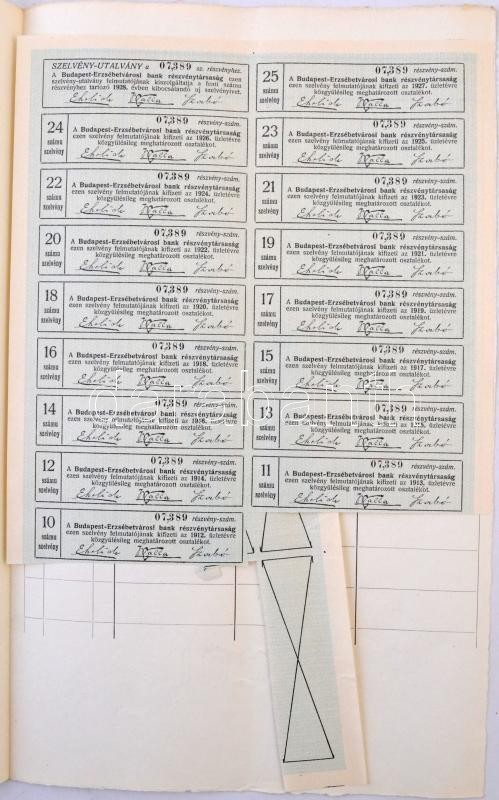 SZELVÉNY-UTALVÁNY a 07,389 sz. részvényhez.
A Budapest-Erzsébetvárosi bank részvénytársaság
szelvény-utalvány felmutatójának kiszolgáltatja a fenti számu
részvényhez tartozó 1928. évben kibocsátandó uj szelvényívet.
07,389 részvény-szám.
25
számu
szelvény
A Budapest-Erzsébetvárosi bank részvénytársaság
ezen szelvény felmutatójának kifizeti az 1927. üzletévre
közgyűlésileg meghatározott osztalékot.
07,389 részvény-szám.
24
számu
szelvény
A Budapest-Erzsébetvárosi bank részvénytársaság
ezen szelvény felmutatójának kifizeti az 1926. üzletévre
közgyűlésileg meghatározott osztalékot.
07,389 részvény-szám.
23
számu
szelvény
A Budapest-Erzsébetvárosi bank részvénytársaság
ezen szelvény felmutatójának kifizeti az 1925. üzletévre
közgyűlésileg meghatározott osztalékot.
07,389 részvény-szám.
22
számu
szelvény
A Budapest-Erzsébetvárosi bank részvénytársaság
ezen szelvény felmutatójának kifizeti az 1924. üzletévre
közgyűlésileg meghatározott osztalékot.
07,389 részvény-szám.
21
számu
szelvény
A Budapest-Erzsébetvárosi bank részvénytársaság
ezen szelvény felmutatójának kifizeti az 1923. üzletévre
közgyűlésileg meghatározott osztalékot.
07,389 részvény-szám.
20
számu
szelvény
A Budapest-Erzsébetvárosi bank részvénytársaság
ezen szelvény felmutatójának kifizeti az 1922. üzletévre
közgyűlésileg meghatározott osztalékot.
07,389 részvény-szám.
19
számu
szelvény
A Budapest-Erzsébetvárosi bank részvénytársaság
ezen szelvény felmutatójának kifizeti az 1921. üzletévre
közgyűlésileg meghatározott osztalékot.
07,389 részvény-szám.
18
számu
szelvény
A Budapest-Erzsébetvárosi bank részvénytársaság
ezen szelvény felmutatójának kifizeti az 1920. üzletévre
közgyűlésileg meghatározott osztalékot.
07,389 részvény-szám.
17
számu
szelvény
A Budapest-Erzsébetvárosi bank részvénytársaság
ezen szelvény felmutatójának kifizeti az 1919. üzletévre
közgyűlésileg meghatározott osztalékot.
07,389 részvény-szám.
16
számu
szelvény
A Budapest-Erzsébetvárosi bank részvénytársaság
ezen szelvény felmutatójának kifizeti az 1918. üzletévre
közgyűlésileg meghatározott osztalékot.
07,389 részvény-szám.
15
számu
szelvény
A Budapest-Erzsébetvárosi bank részvénytársaság
ezen szelvény felmutatójának kifizeti az 1917. üzletévre
közgyűlésileg meghatározott osztalékot.
07,389 részvény-szám.
14
számu
szelvény
A Budapest-Erzsébetvárosi bank részvénytársaság
ezen szelvény felmutatójának kifizeti az 1916. üzletévre
közgyűlésileg meghatározott osztalékot.
07,389 részvény-szám.
13
számu
szelvény
A Budapest-Erzsébetvárosi bank részvénytársaság
ezen szelvény felmutatójának kifizeti az 1915. üzletévre
közgyűlésileg meghatározott osztalékot.
07,389 részvény-szám.
12
számu
szelvény
A Budapest-Erzsébetvárosi bank részvénytársaság
ezen szelvény felmutatójának kifizeti az 1914. üzletévre
közgyűlésileg meghatározott osztalékot.
07,389 részvény-szám.
11
számu
szelvény
A Budapest-Erzsébetvárosi bank részvénytársaság
ezen szelvény felmutatójának kifizeti az 1913. üzletévre
közgyűlésileg meghatározott osztalékot.
07,389 részvény-szám.
10
számu
szelvény
A Budapest-Erzsébetvárosi bank részvénytársaság
ezen szelvény felmutatójának kifizeti az 1912. üzletévre
közgyűlésileg meghatározott osztalékot.